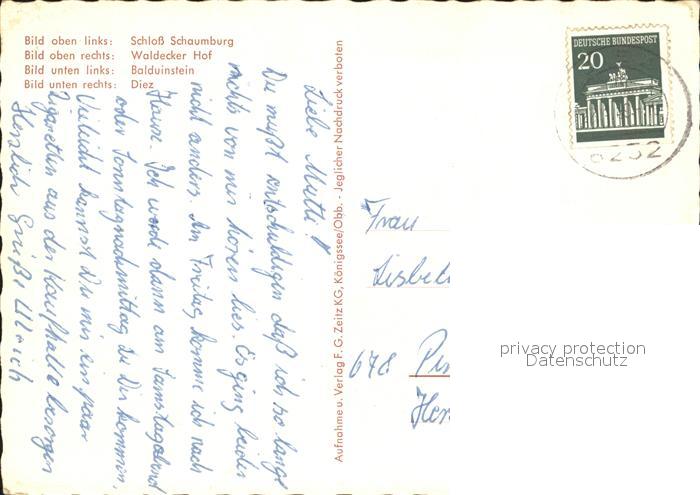 Bild oben links: Schloß Schaumburg
Bild oben rechts: Waldecker Hof
Bild unten links: Balduinstein
Bild unten rechts: Diez
Liebe Mutti!
Du mußt entschuldigen daß ich so lange
nichts von mir hören lies. Es ging leider
nicht anders. Am Freitag komme ich nach
Hause. Ich werde dann am Samstagabend
oder Sonntagnachmittag zu Dir kommen.
Vieleicht kannst Du mir ein paar
Zigaretten aus der Kaufhalle besorgen
Herzlich Grüße Ulrich
Aufnahme u. Verlag F. G. Zeitz KG, Königssee/Obb. - Jeglicher Nachdruck verboten
DEUTSCHE BUNDESPOST
20
6252
Frau
Lisbe
678 Pir
privacy protection
Datenschutz